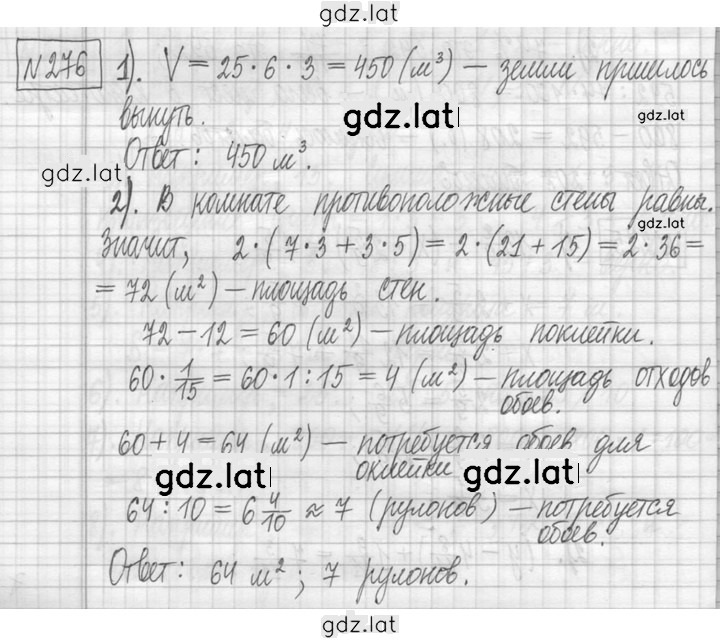 gdz.lat
№276 1). V = 25 · 6 · 3 = 450 (м³) – земли пришлось
вынуть.
gdz.lat
gdz.lat
Ответ: 450 м³.
gdz.lat
2). В комнате противоположные стены равны.
gdz.lat
Значит, 2 · (7 · 3 + 3 · 5) = 2 · (21 + 15) = 2 · 36 =
= 72 (м²) – площадь стен.
72 – 12 = 60 (м²) – площадь поклейки.
60 · 1/15 = 60 · 1 : 15 = 4 (м²) – площадь отходов
обоев.
60 + 4 = 64 (м²) – потребуется обоев для
оклейки
gdz.lat
gdz.lat
64 : 10 = 6 4/10 ≈ 7 (рулонов) – потребуется
обоев.
Ответ: 64 м²; 7 рулонов.
gdz.lat